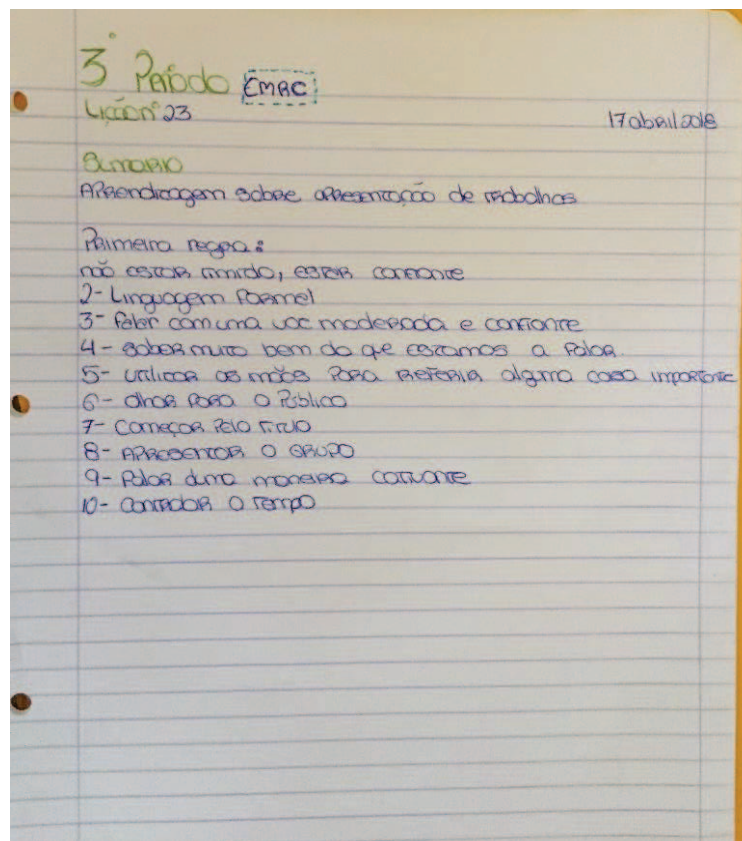 3º Período EMRC
Lição nº 23
17 abril 2018
Sumário
Aprendizagem sobre apresentação de trabalhos
Primeira regra:
não estar timido, estar confiante
2- Linguagem formal
3- falar com uma voz moderada e confiante
4- saber muito bem do que estamos a falar
5- utilizar as mãos para referir alguma coisa importante
6- olhar para o Público
7- começar pelo titulo
8- Apresentar o grupo
9- falar duma maneira cativante
10- controlar o tempo